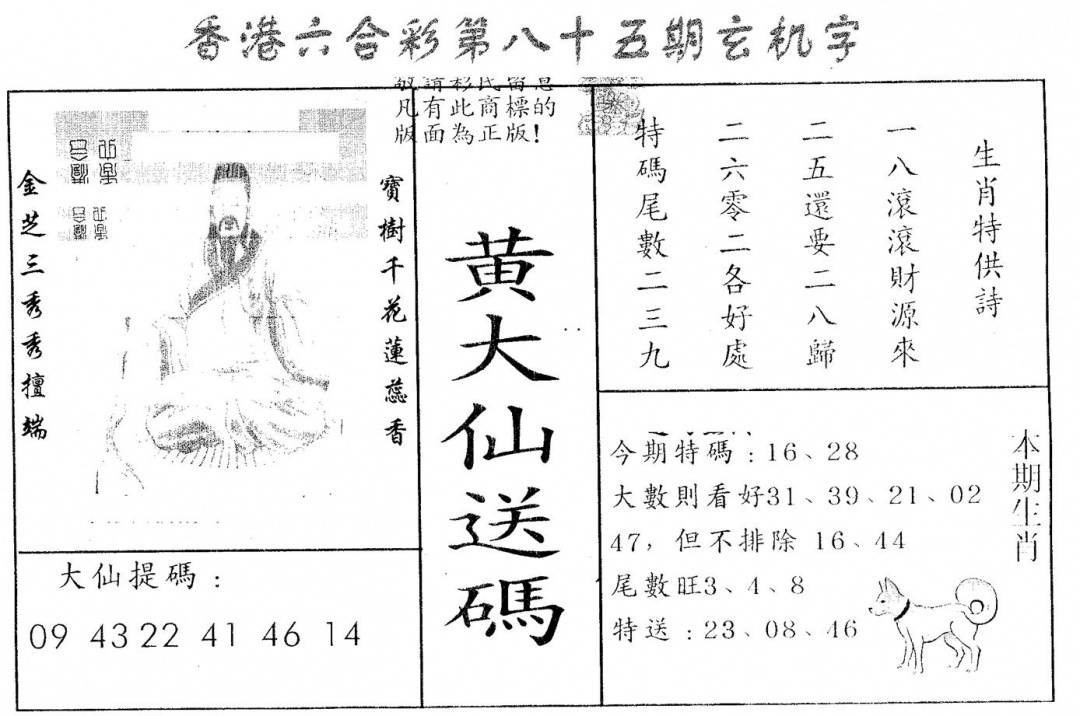 香港六合彩第八十五期玄机字
敬請彩民留意
凡有此商標的
版面為正版!
金芝三秀秀擅端
寶樹千花蓮蕊香
黃大仙送碼
生肖特供詩
一八滾滾財源來
二五還要二八歸
二六零二各好處
特碼尾數二三九
大仙提碼：
09 43 22 41 46 14
本期生肖
今期特碼：16、28
大數則看好31、39、21、02
47，但不排除 16、44
尾數旺3、4、8
特送：23、08、46